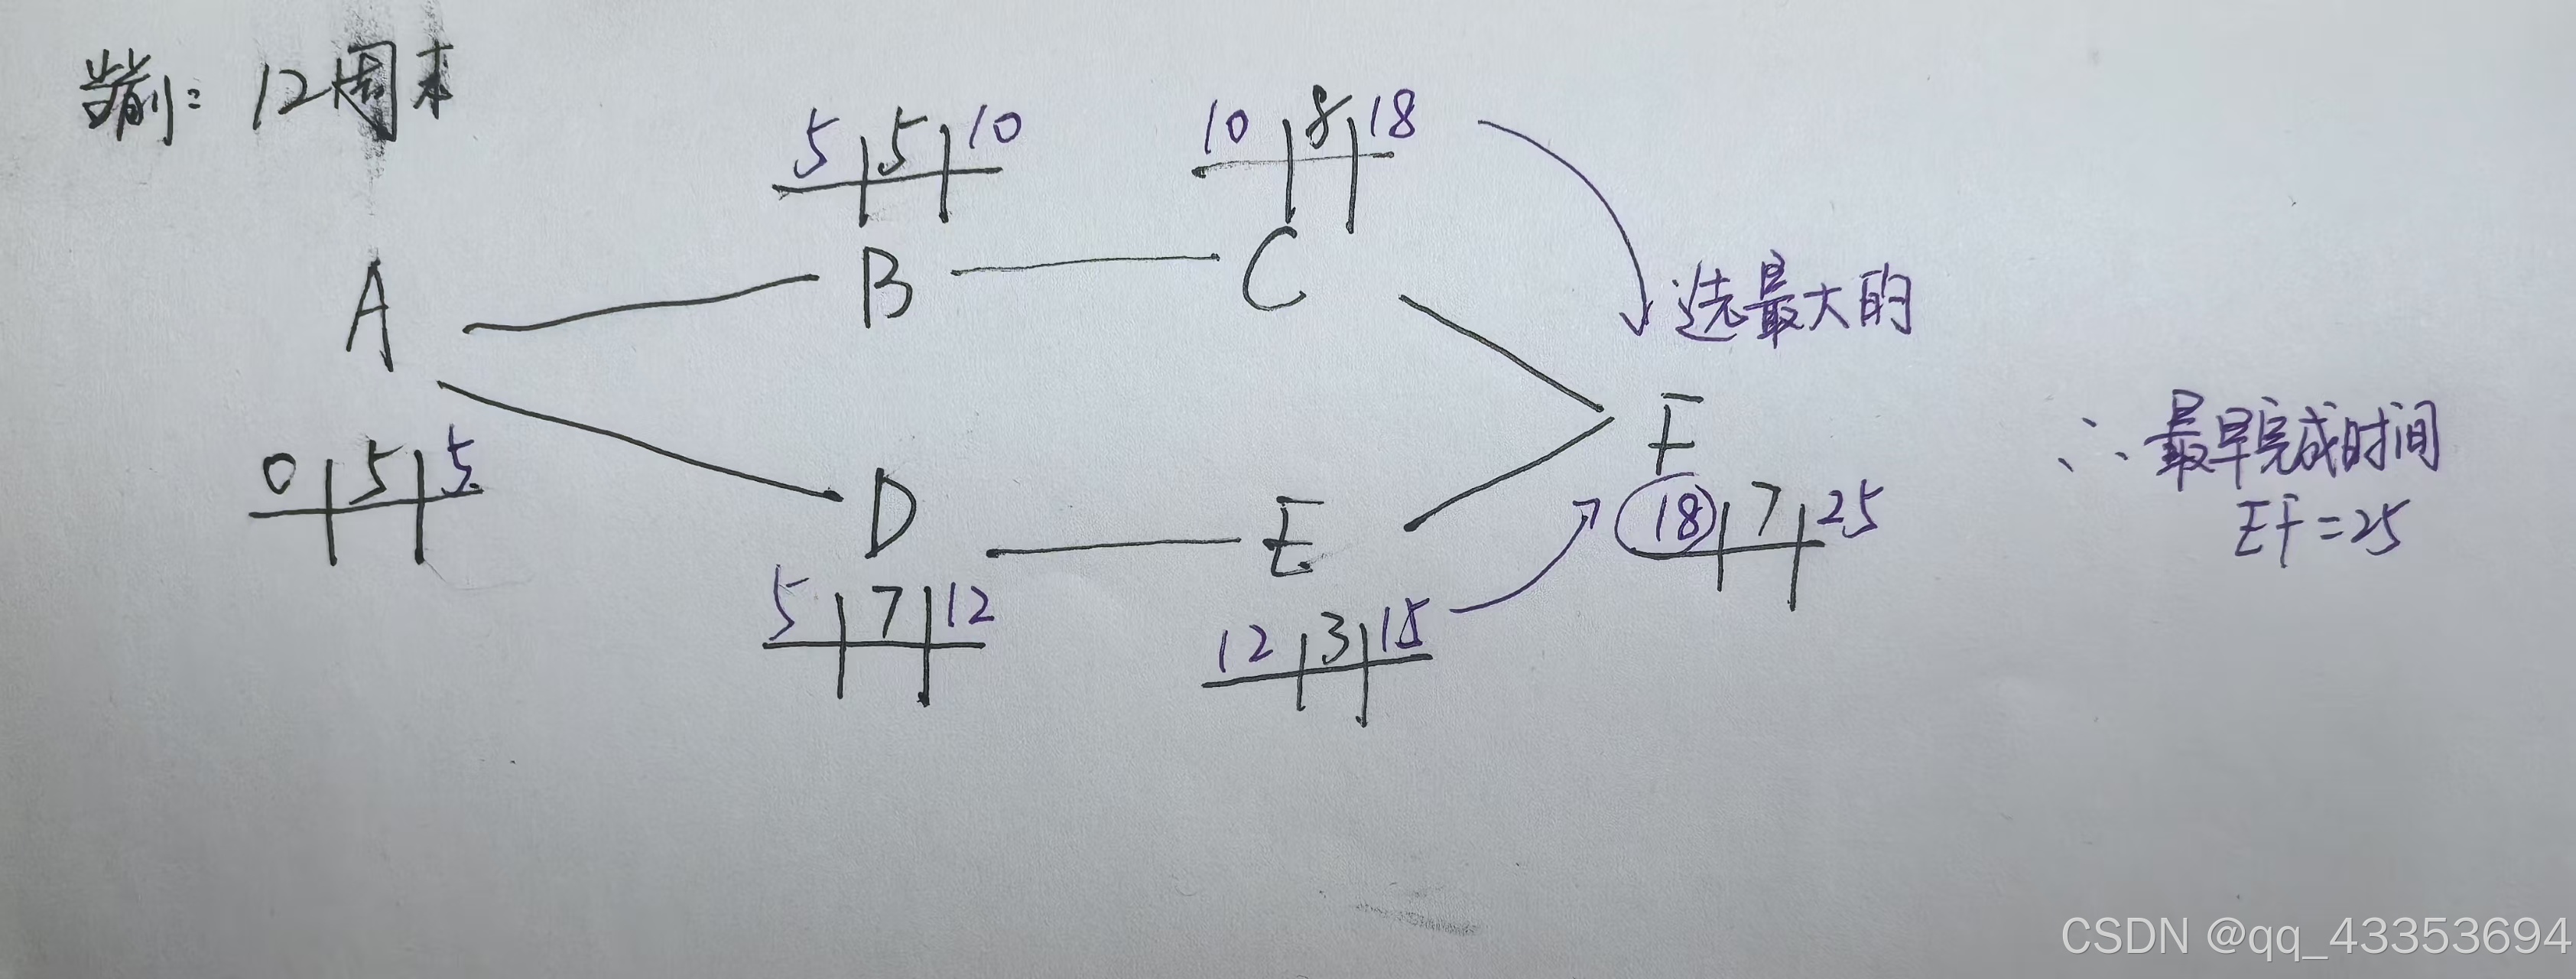 当前：12周末
5 5 10
10 8 18
A
B
C
选最大的
0 5 5
D
E
F
18 7 25
5 7 12
12 3 15
∴ 最早完成时间
EF=25
CSDN @qq_43353694